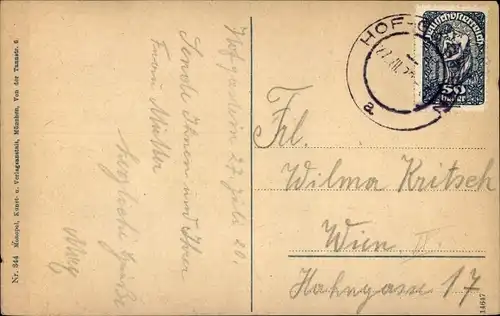 Nr. 344 Monopol, Kunst- u. Verlagsanstalt, München, Von der Tannstr. 5
Hofgastein 27. Juli 20.
Sende Ihnen und Ihrer
Frau Mutter
herzliche Grüße
HOF-G
a
Deutschösterreich
Frl.
Wilma Kritsch
Wien II.
Hahngasse 17
14647